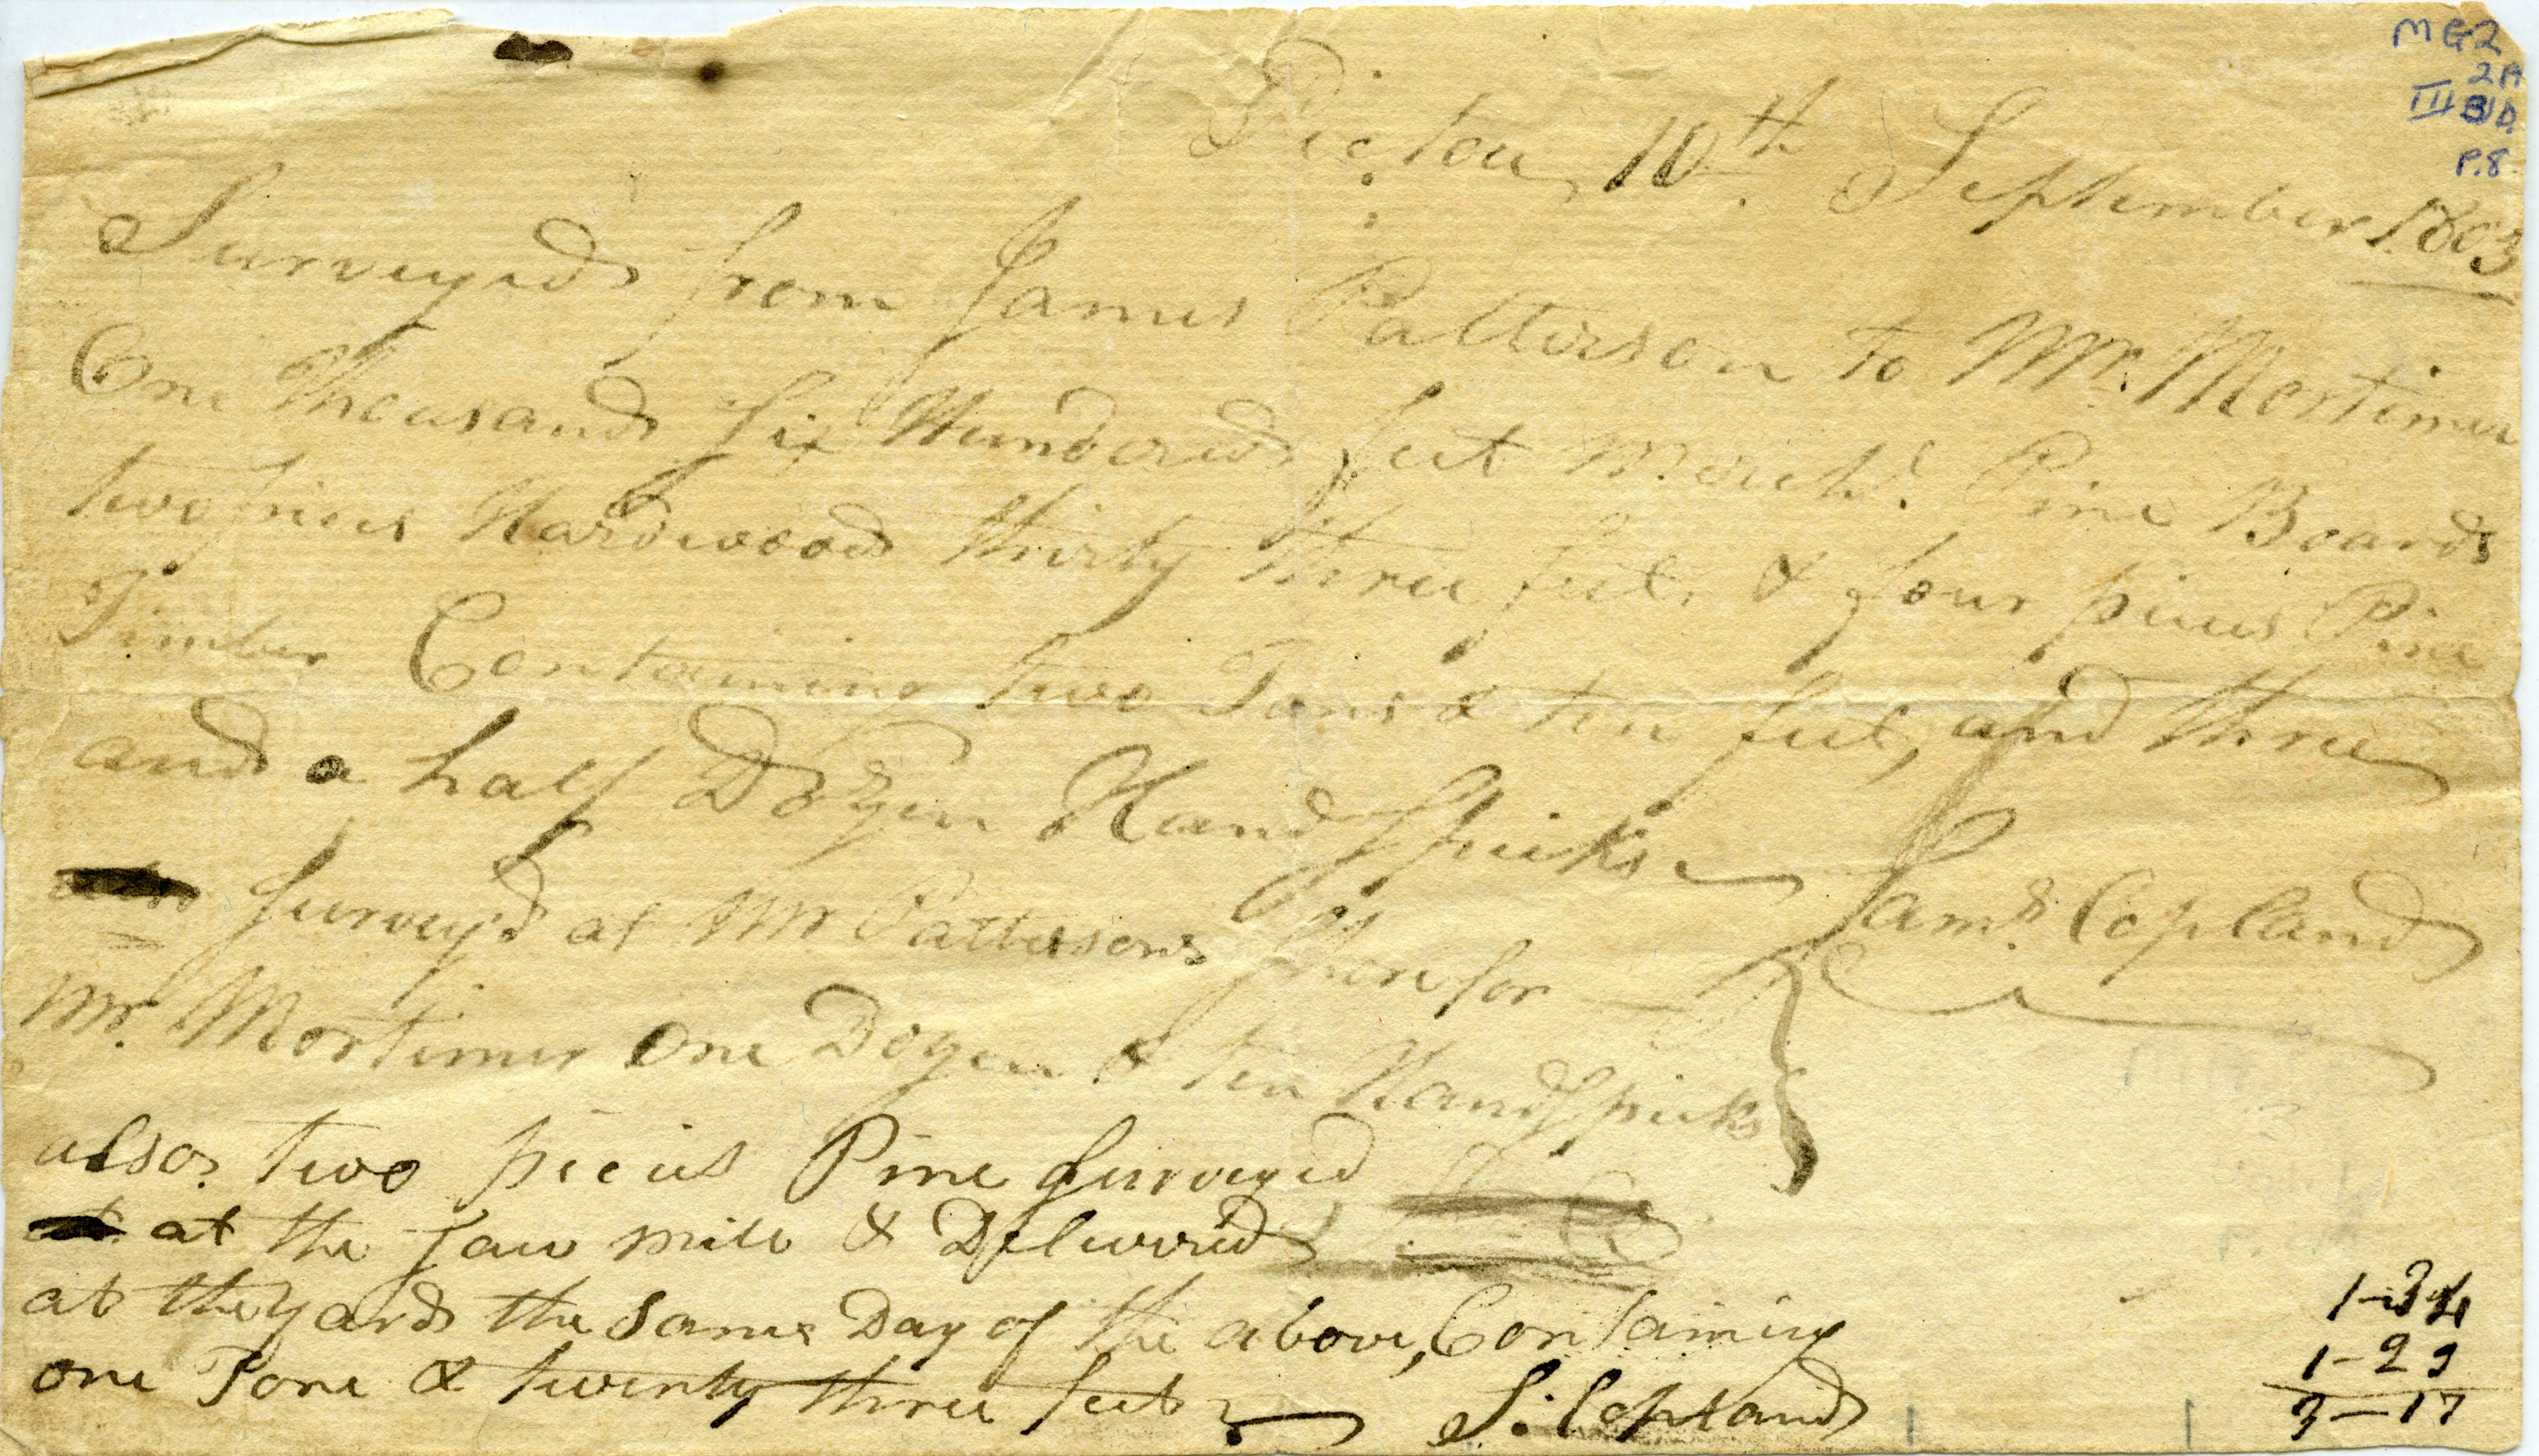 MG2
2A
III B/D.
P.8
Pictou, 10th. September 1803
Surveyed from James Patterson to Mr. Mortimer
One Thousand Six Hundered feet Merchl. Pine Boards
two pieces Hardwood thirty three feet, & four pieces Pine
Timber Containing two Tons & ten feet, and three
and a half Dozen Hand Spicks
Jams. Copland
Survey'd at Mr Pattersons Shore for
Mr. Mortimer One Dozen & ten Hand Spicks
also two pieces Pine Surveyed
at the Saw mill & Delivered
at the Yard the Same Day of the above, Containing
one Tone & twenty three feet
J: Copland
1-34
1-23
3-17